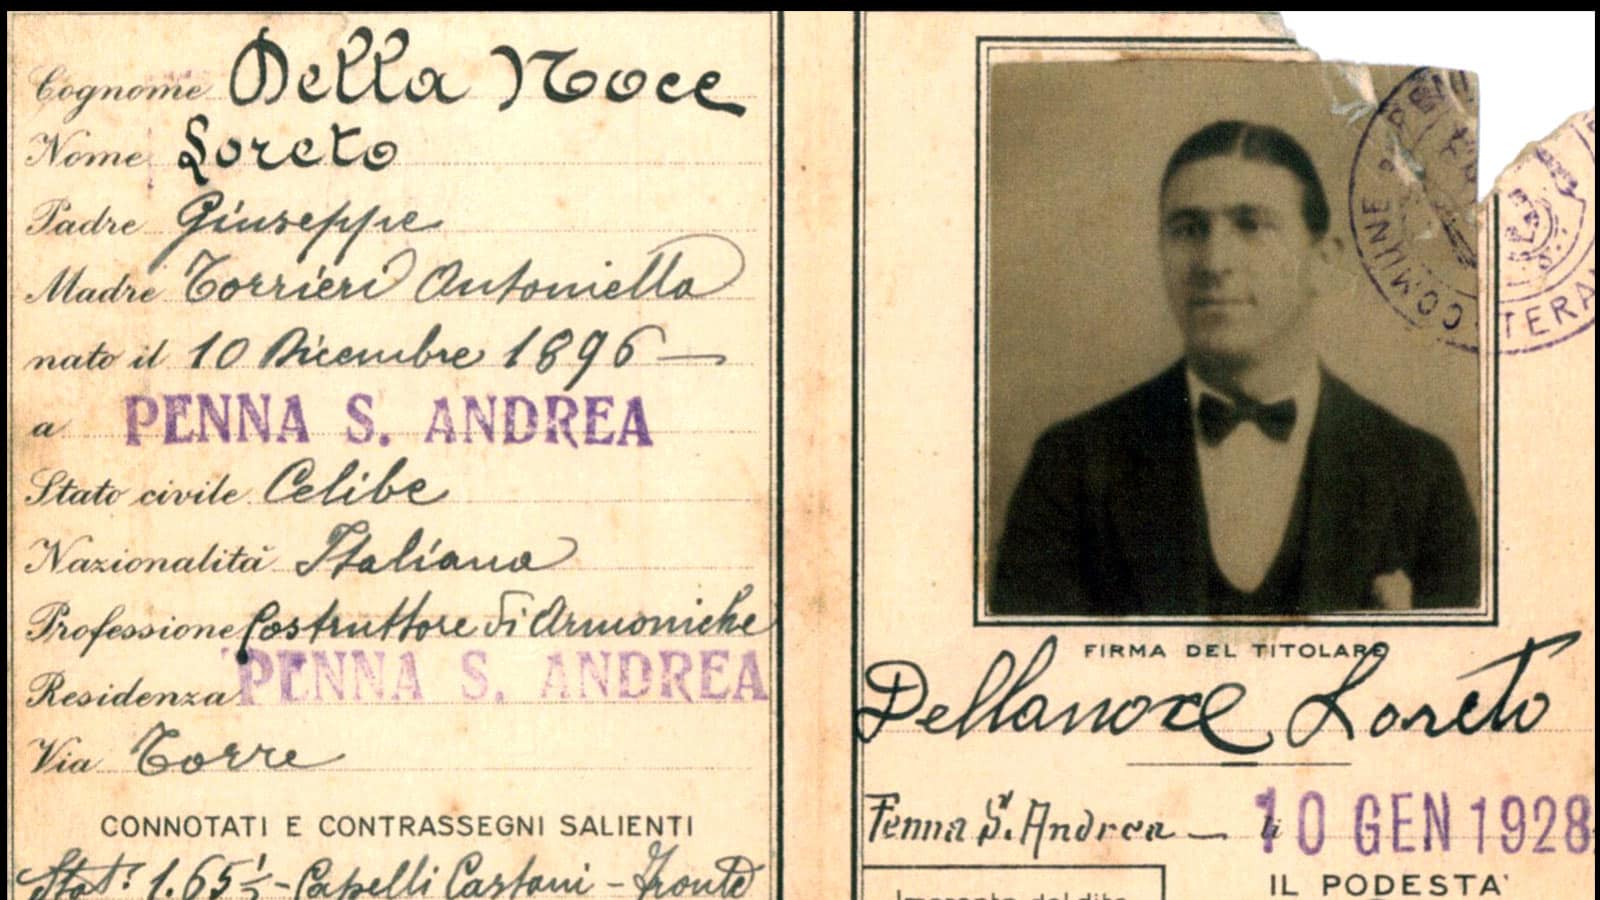 Cognome Della Noce
Nome Loreto
Padre Giuseppe
Madre Torrieri Antoniella
nato il 10 Dicembre 1896
a PENNA S. ANDREA
Stato civile Celibe
Nazionalità Italiana
Professione Costruttore di Armoniche
Residenza PENNA S. ANDREA
Via Torre
CONNOTATI E CONTRASSEGNI SALIENTI
Stat. 1.65½ - Capelli Castani - Fronte
COMUNE
TERA
FIRMA DEL TITOLARE
Dellanoce Loreto
Penna S. Andrea - li 10 GEN 1928
IL PODESTA'
Impronta del dito